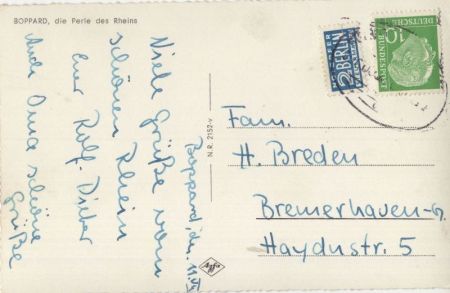 BOPPARD, die Perle des Rheins
Boppard, den 11.VI
Viele Grüße vom
schönen Rhein
Eur Rolf-Dieter
Auch Oma schöne
Grüße
N.R. 2152-v
Agfa
NOTOPFER
2 BERLIN
STEUERMARKE
10
DEUTSCHE
BUNDESPOST
Fam.
H. Breden
Bremerhaven-G.
Haydnstr. 5